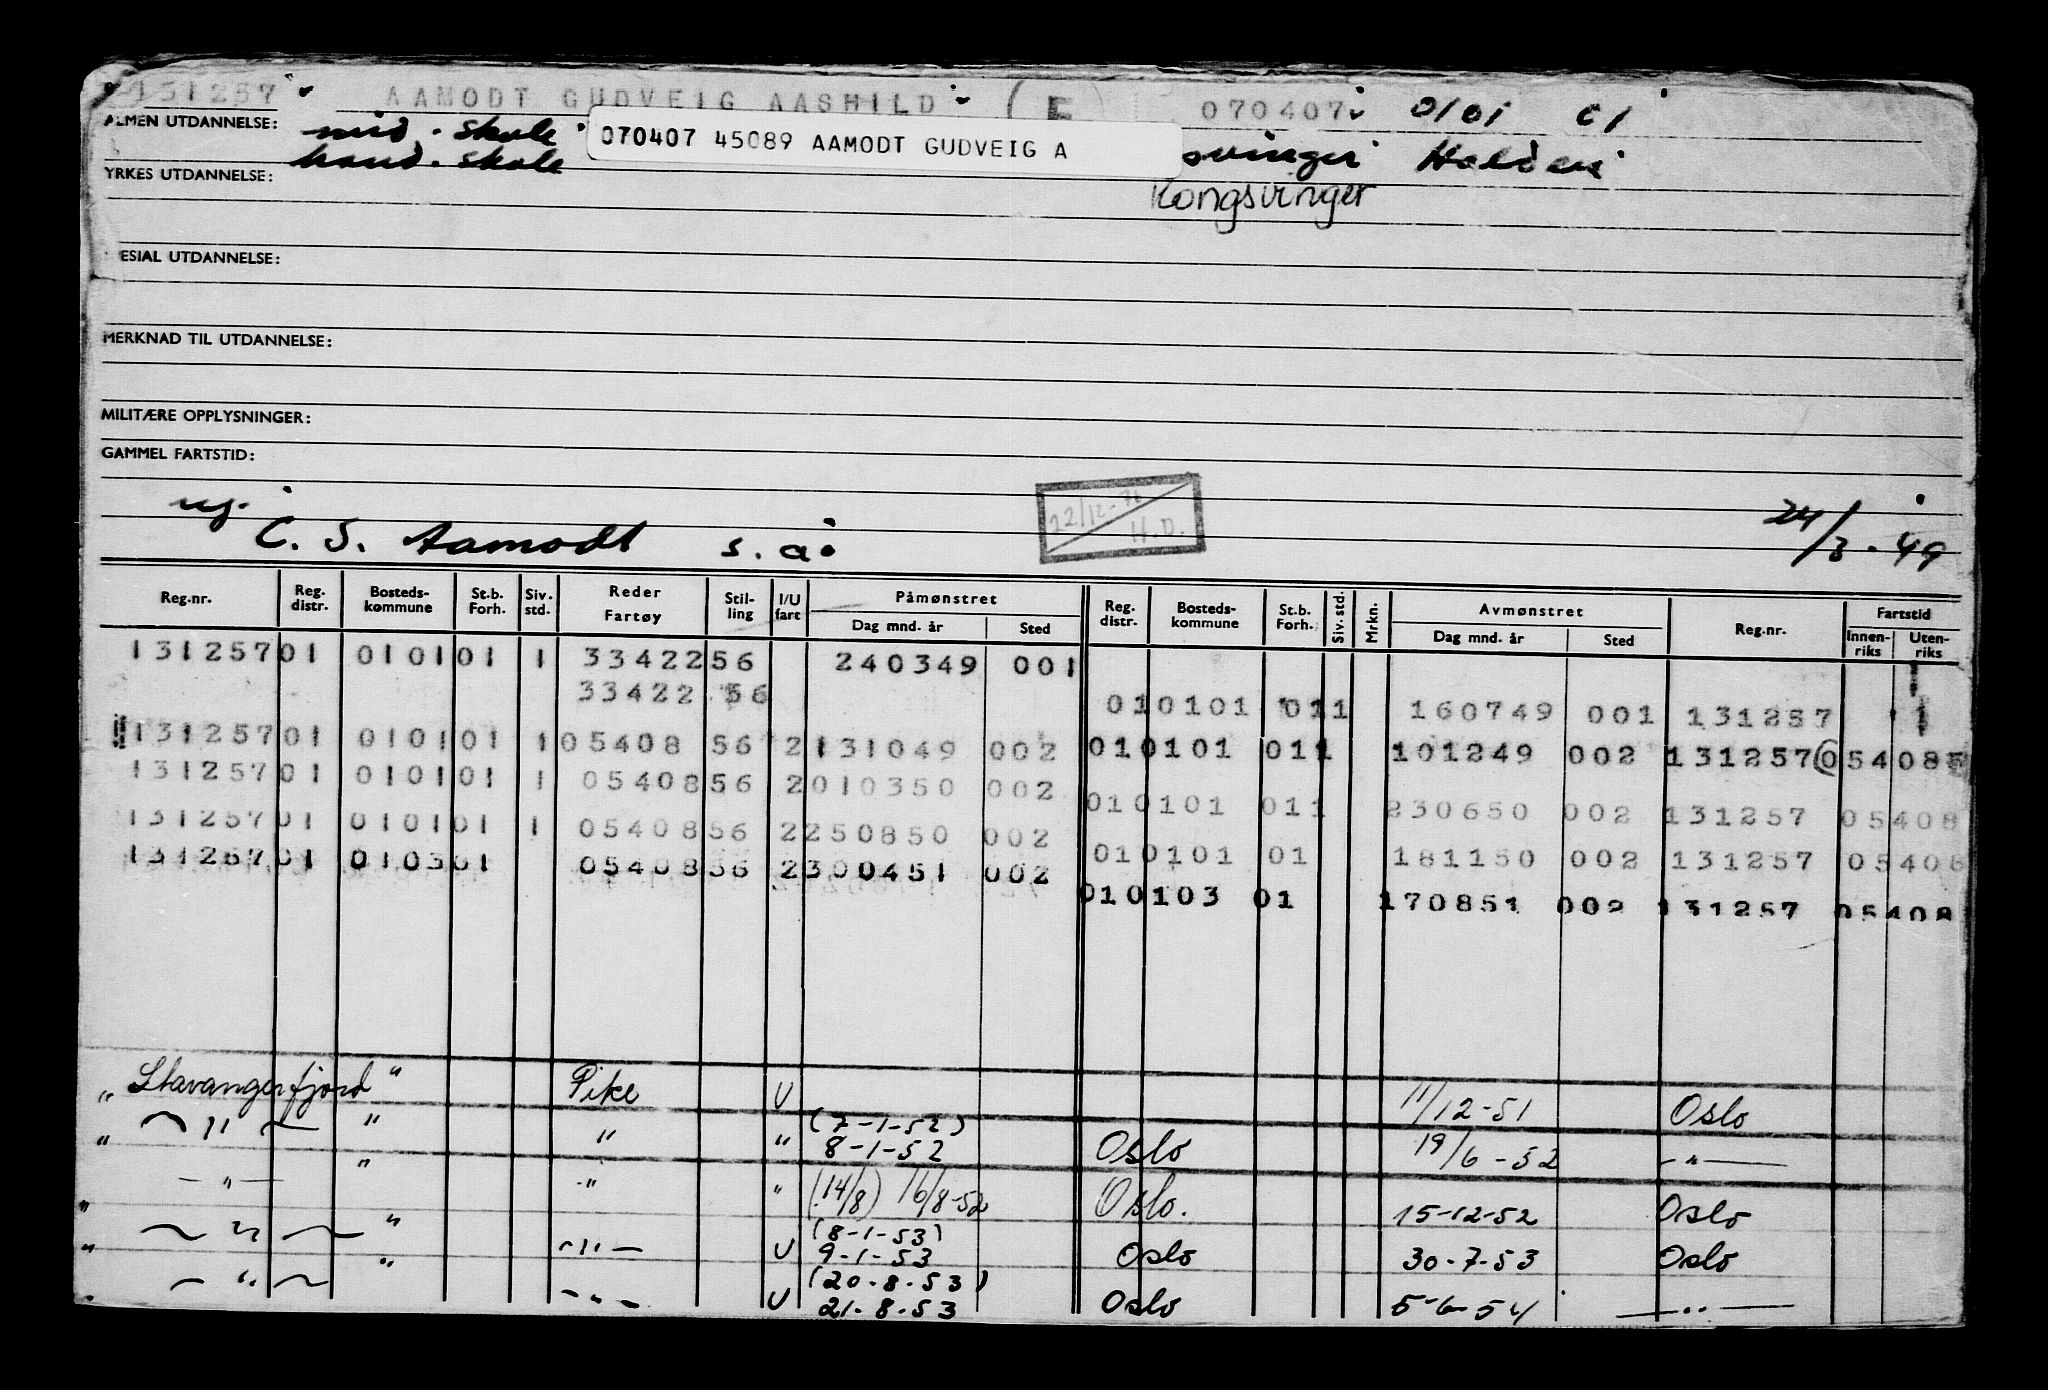 131257 AAMODT GUDVEIG AASHILD (F) 070407 0101 01
ALMEN UTDANNELSE: mid. skole
070407 45089 AAMODT GUDVEIG A
svinger Halden
hand. skole
YRKES UTDANNELSE:
Kongsvinger
ESIAL UTDANNELSE:
MERKNAD TIL UTDANNELSE:
MILITÆRE OPPLYSNINGER:
GAMMEL FARTSTID:
22/12-71 H.D.
ug.
C. S. Aamodt s. å.
24/3-49
Reg.nr. Reg. distr. Bosteds-kommune St.b. Forh. Siv. std. Reder Fartøy Stil-ling I/U fart Påmønstret Dag mnd. år Sted Reg. distr. Bosteds-kommune St.b. Forh. Siv. std. Mrkn. Avmønstret Dag mnd. år Sted Reg.nr. Fartstid Innen-riks Uten-riks
131257 01 0101 01 1 33422 56 240349 001
33422 56 01 0101 011 1 160749 001 131257 1
131257 01 0101 01 1 05408 56 2 131049 002 01 0101 011 101249 002 131257 054085
131257 01 0101 01 1 05408 56 2 010350 002 01 0101 011 230650 002 131257 05408
131257 01 0101 01 1 05408 56 2 250850 002 01 0101 01 181150 002 131257 05408
131257 01 0103 01 05408 56 2 300451 002 01 0103 01 170851 002 131257 05408
" Stavangerfjord " Pike U 11/12-51 Oslo
" — " — " " " (7-1-52) 8-1-52 Oslo 19/6-52 — " —
— " — " " " (14/8) 16/8-52 Oslo. 15-12-52 Oslo
" — " — " — " — U (8-1-53) 9-1-53 Oslo 30-7-53 Oslo
" — " — " — " — U (20-8-53) 21-8-53 Oslo 5-6-54 — " —